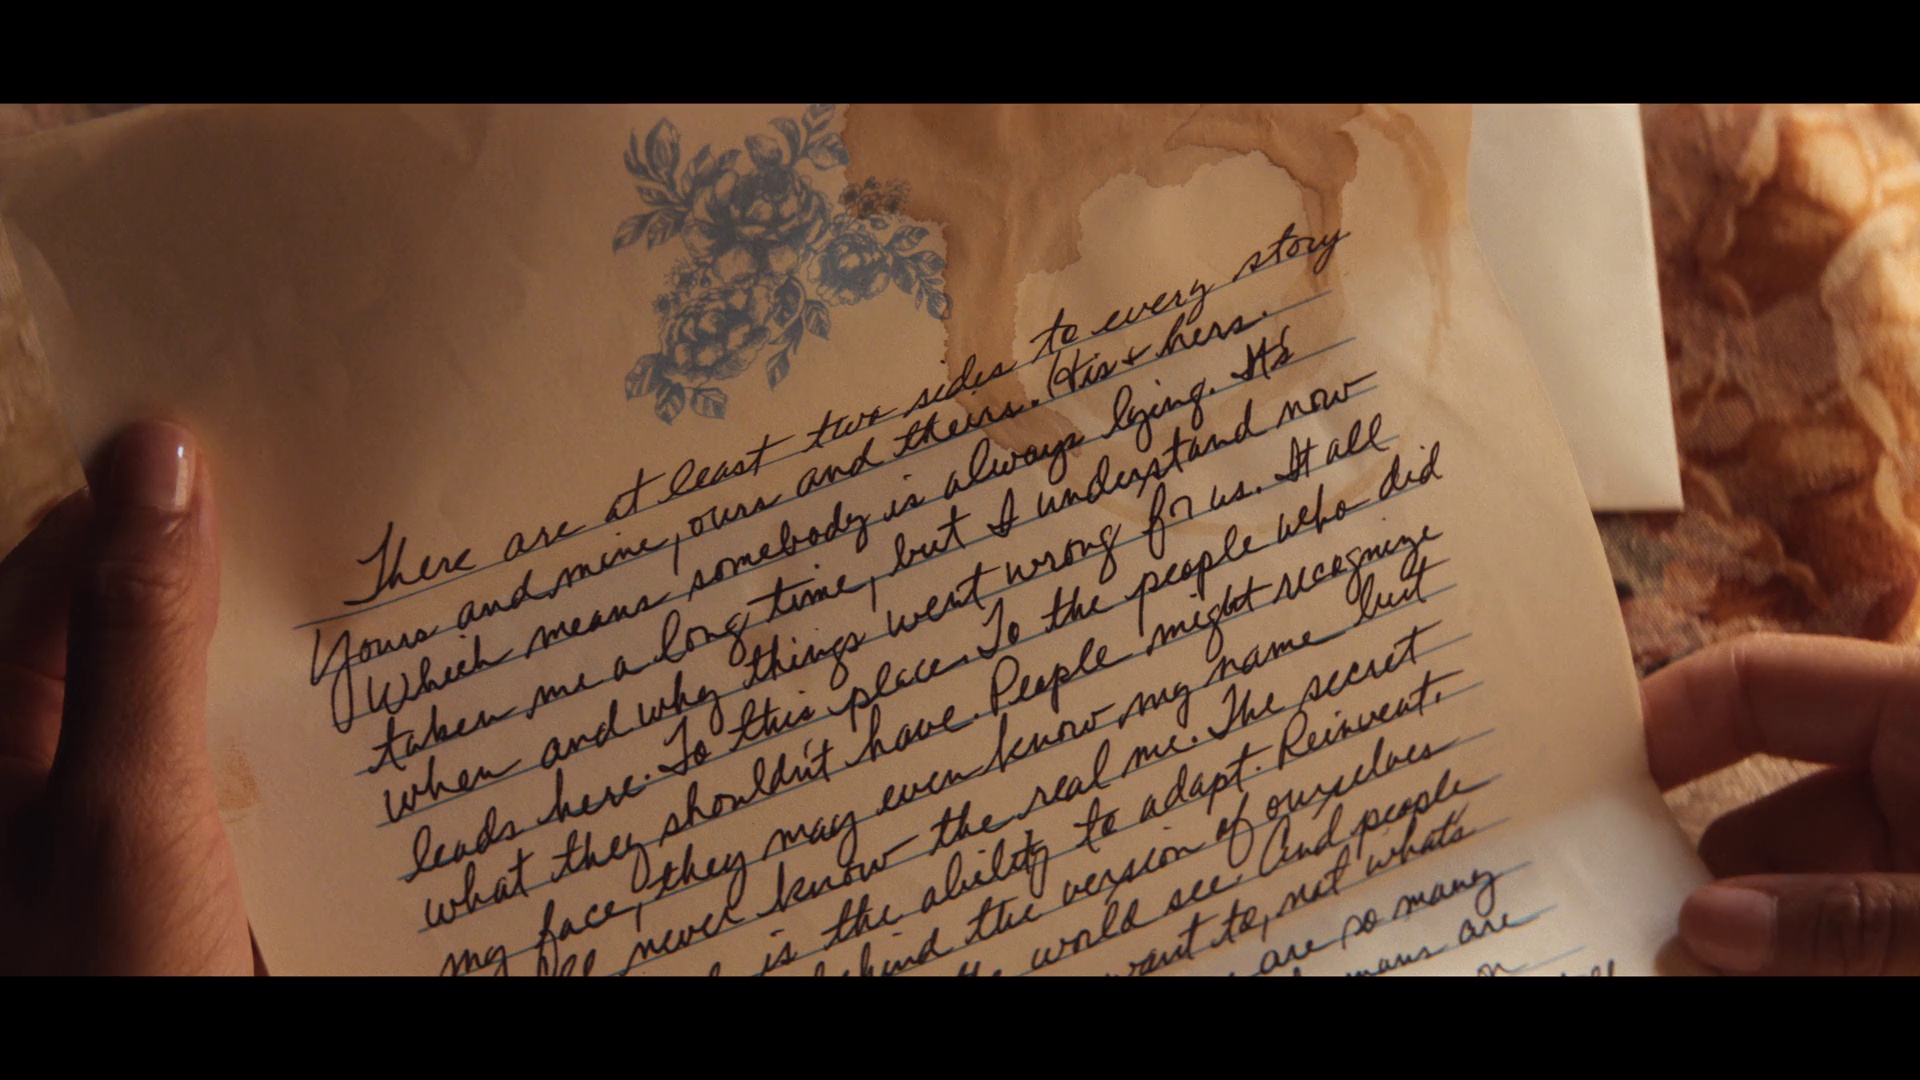 There are at least two sides to every story
Yours and mine, ours and theirs. His & hers.
Which means somebody is always lying. It's
taken me a long time, but I understand now
when and why things went wrong for us. It all
leads here. To this place. To the people who did
what they shouldn't have. People might recognize
my face, they may even know my name but
never know the real me. The secret
is the ability to adapt. Reinvent.
the version of ourselves
world see. And people
want to, not what's
are so many
are